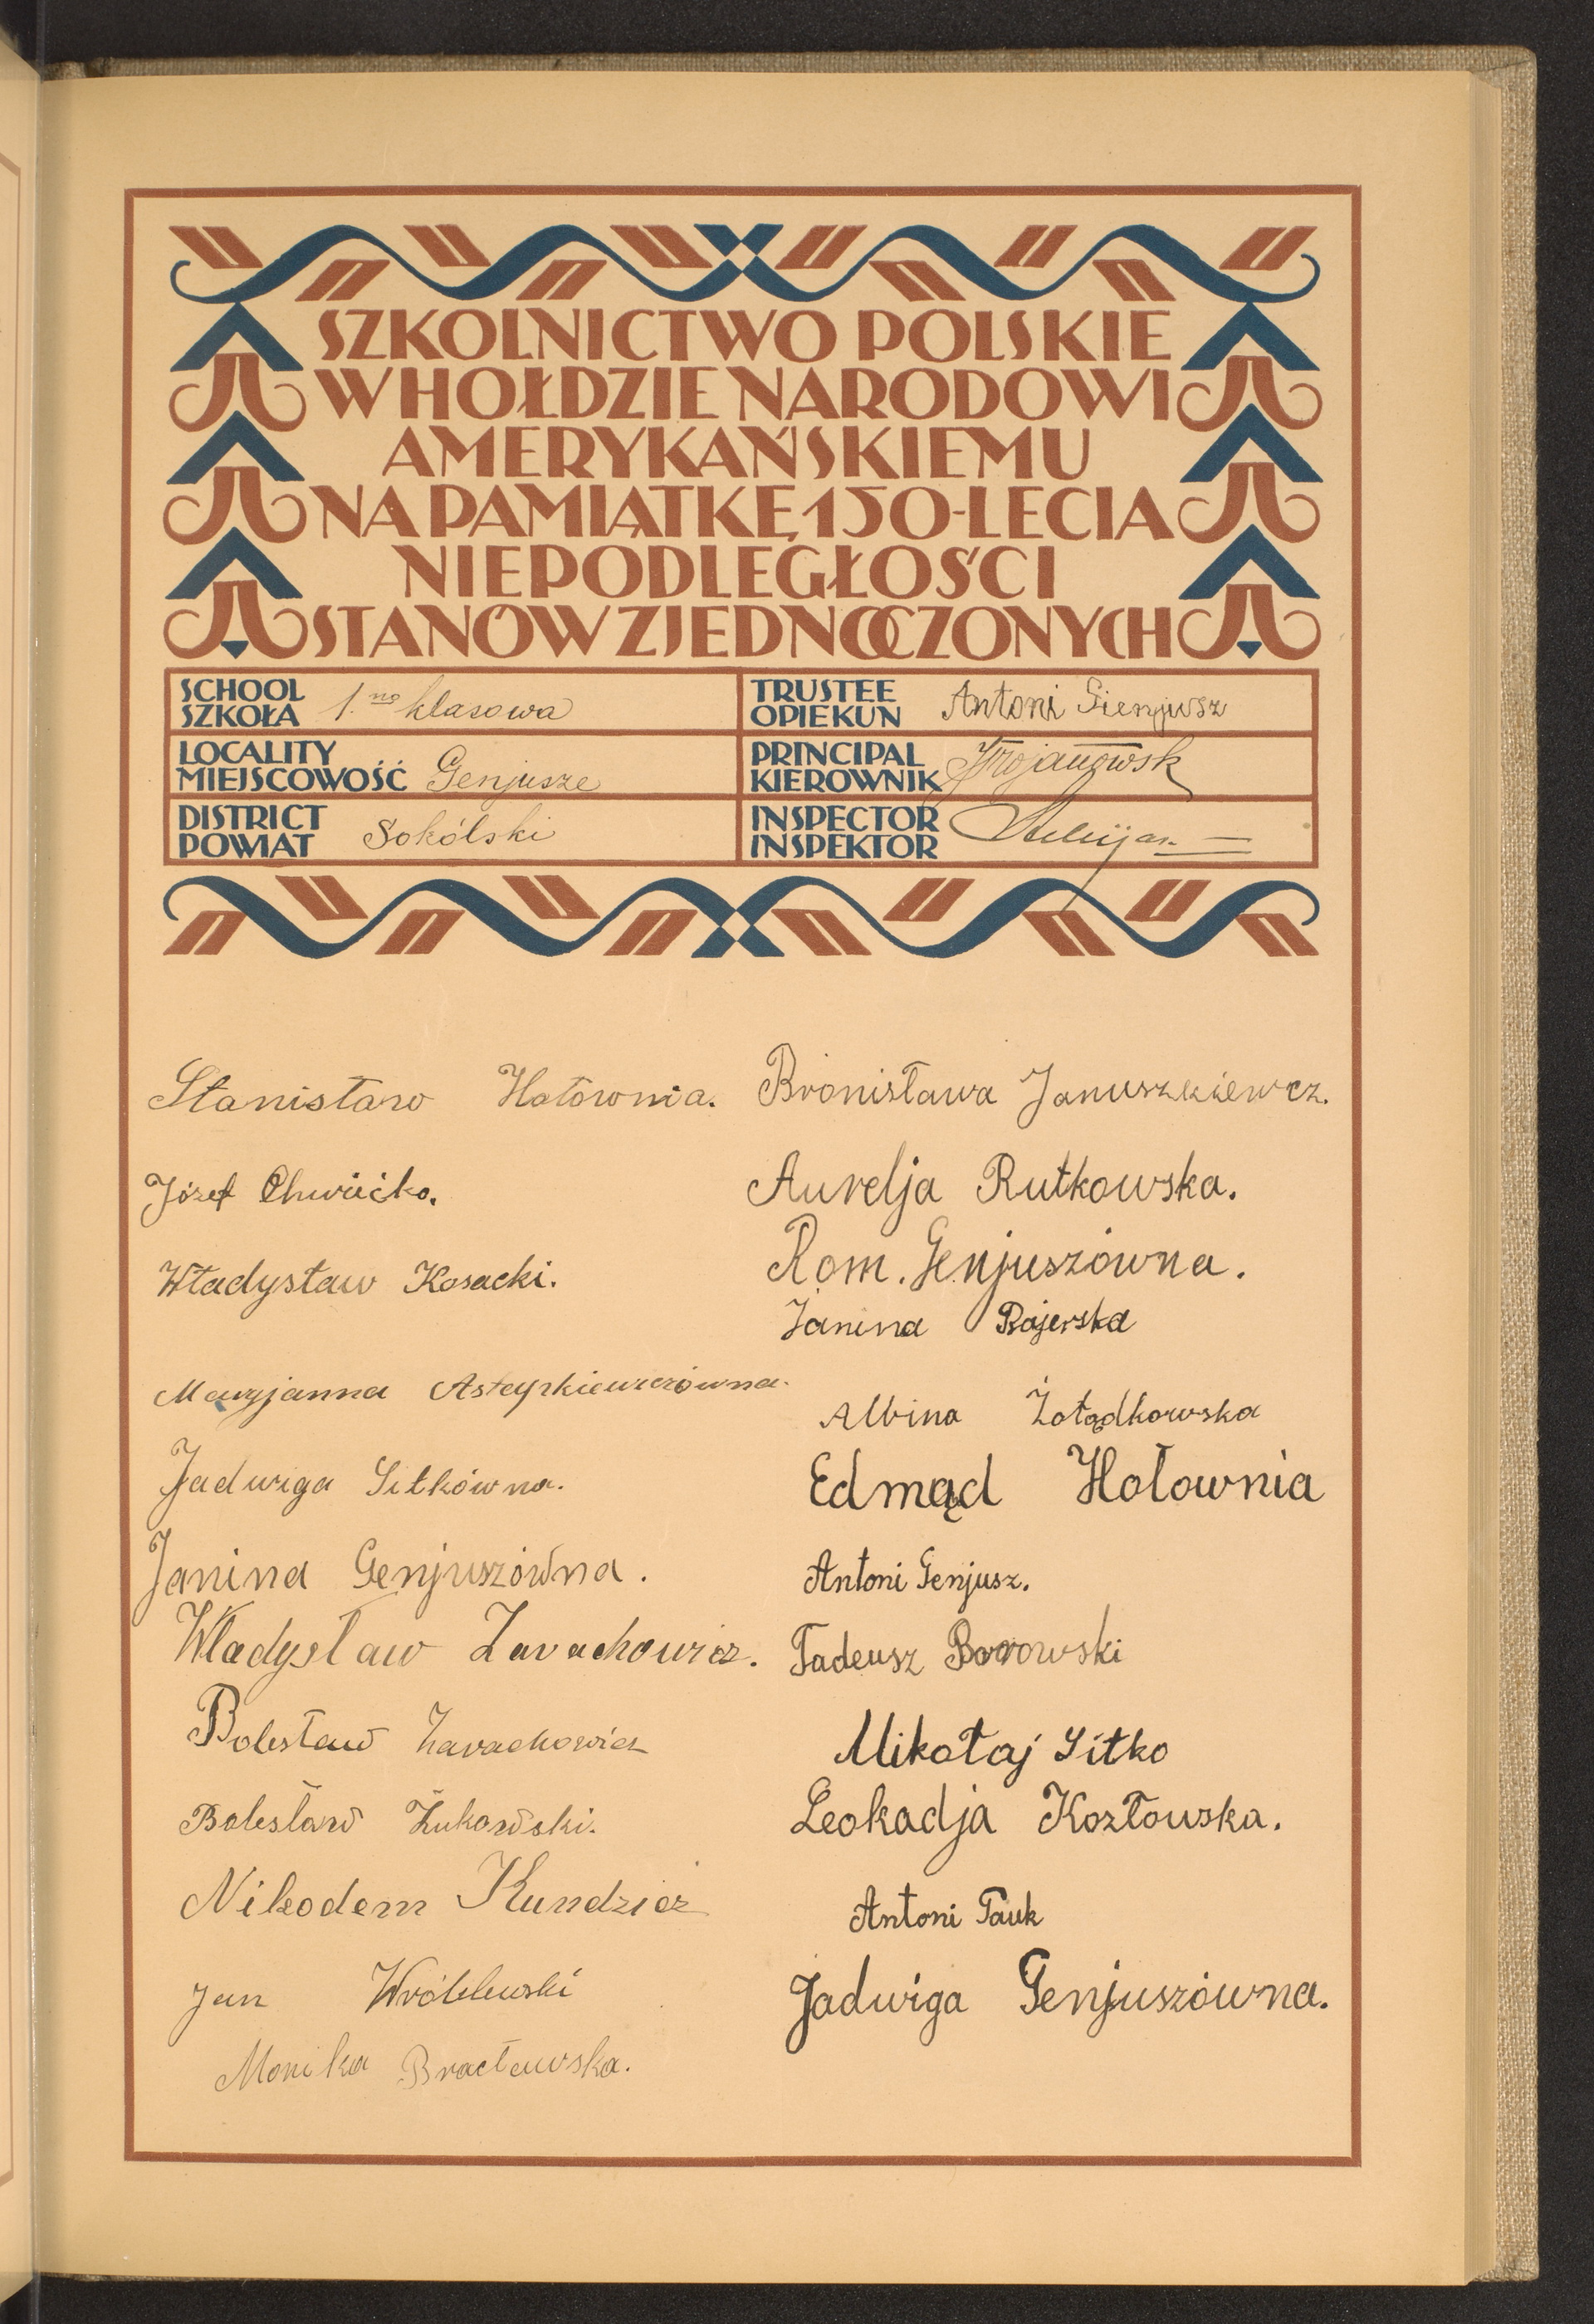 SZKOLNICTWO POLSKIE
W HOŁDZIE NARODOWI
AMERYKAŃSKIEMU
NA PAMIĄTKĘ 150-LECIA
NIEPODLEGŁOŚCI
STANÓW ZJEDNOCZONYCH
SCHOOL
SZKOŁA 1.no klasowa
TRUSTEE
OPIEKUN Antoni Gienjusz
LOCALITY
MIEJSCOWOŚĆ Genjusze
PRINCIPAL
KIEROWNIK Trojanowsk
DISTRICT
POWIAT Sokólski
INSPECTOR
INSPEKTOR
Stanisław Hołownia.
Józef Chwiećko.
Władysław Kosacki.
Maryjanna
Jadwiga Sitkówna.
Janina Genjuszówna.
Władysław Zarachowicz.
Bolesław Zarachowicz
Bolesław Żukowski.
Nikodem Kundzicz
Jan Wróblewski
Monika Bracławska.
Bronisława Januszkiewcz.
Aurelja Rutkowska.
Rom. Genjuszówna.
Janina Rajerska
Albina Żołądkowska
Edmąd Hołownia
Antoni Genjusz.
Tadeusz Borowski
Mikołaj Sitko
Leokadja Kozłowska.
Antoni Tauk
Jadwiga Genjuszówna.